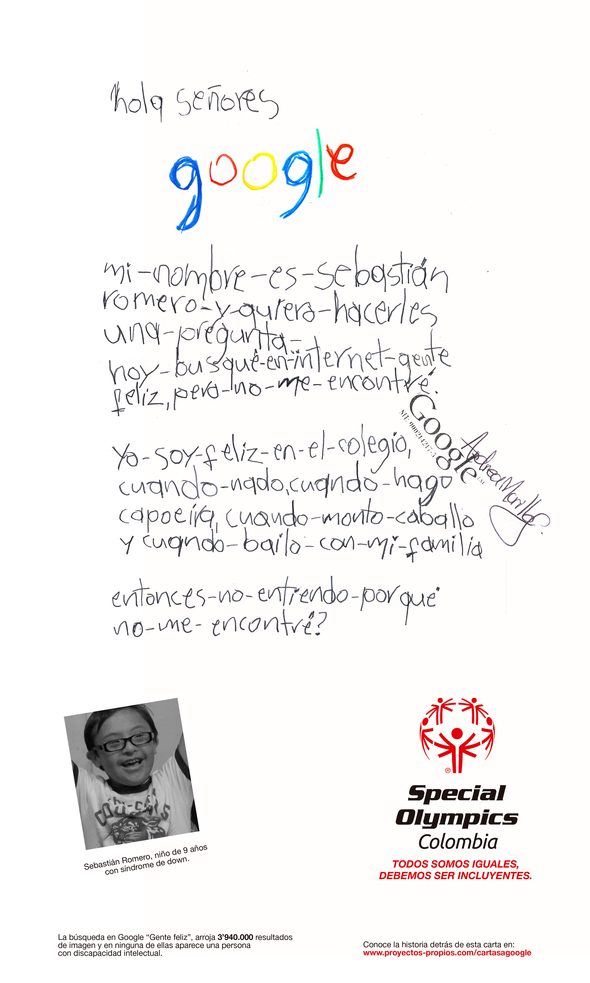 hola señores
google
mi-nombre-es-sebastián
romero-y-quiero-hacerles
una-pregunta-
hoy-busqué-en-internet-gente
feliz, pero-no-me-encontré.
Google
Yo-soy-feliz-en-el-colegio,
cuando-nado, cuando-hago
capoeira, cuando-monto-caballo
y cuando-bailo-con-mi-familia
entonces-no-entiendo-porqué
no-me-encontré?
Sebastián Romero, niño de 9 años
con síndrome de down.
®
Special
Olympics
Colombia
TODOS SOMOS IGUALES,
DEBEMOS SER INCLUYENTES.
La búsqueda en Google "Gente feliz", arroja 3'940.000 resultados
de imagen y en ninguna de ellas aparece una persona
con discapacidad intelectual.
Conoce la historia detrás de esta carta en:
www.proyectos-propios.com/cartasagoogle